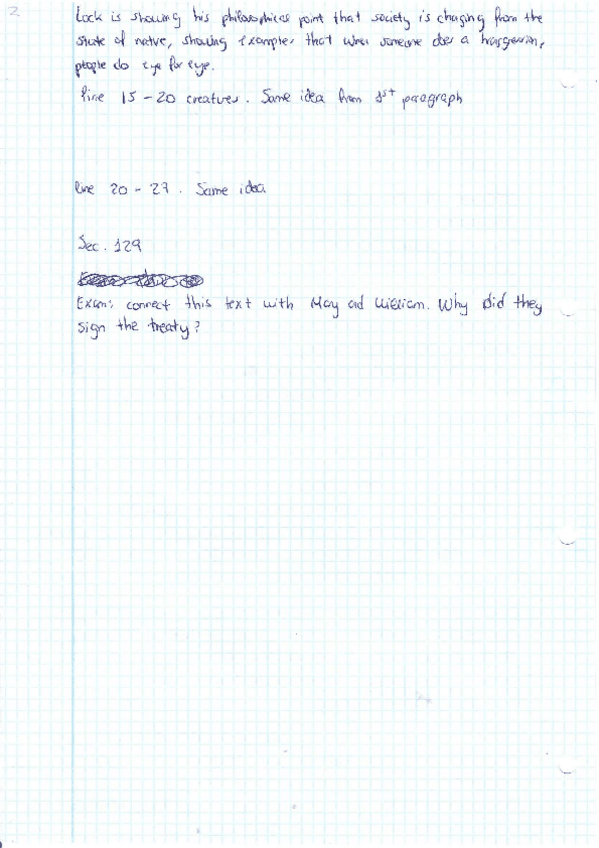 2
Lock is showing his philosophical point that society is chaging from the
state of native, showing examples that when someone does a trasgession,
people do eye for eye.
line 15 - 20 creatures. Same idea from 1st paragraph
line 20 - 27. Same idea
Sec. 129
Exam: connect this text with May ad William. Why did they
sign the treaty?